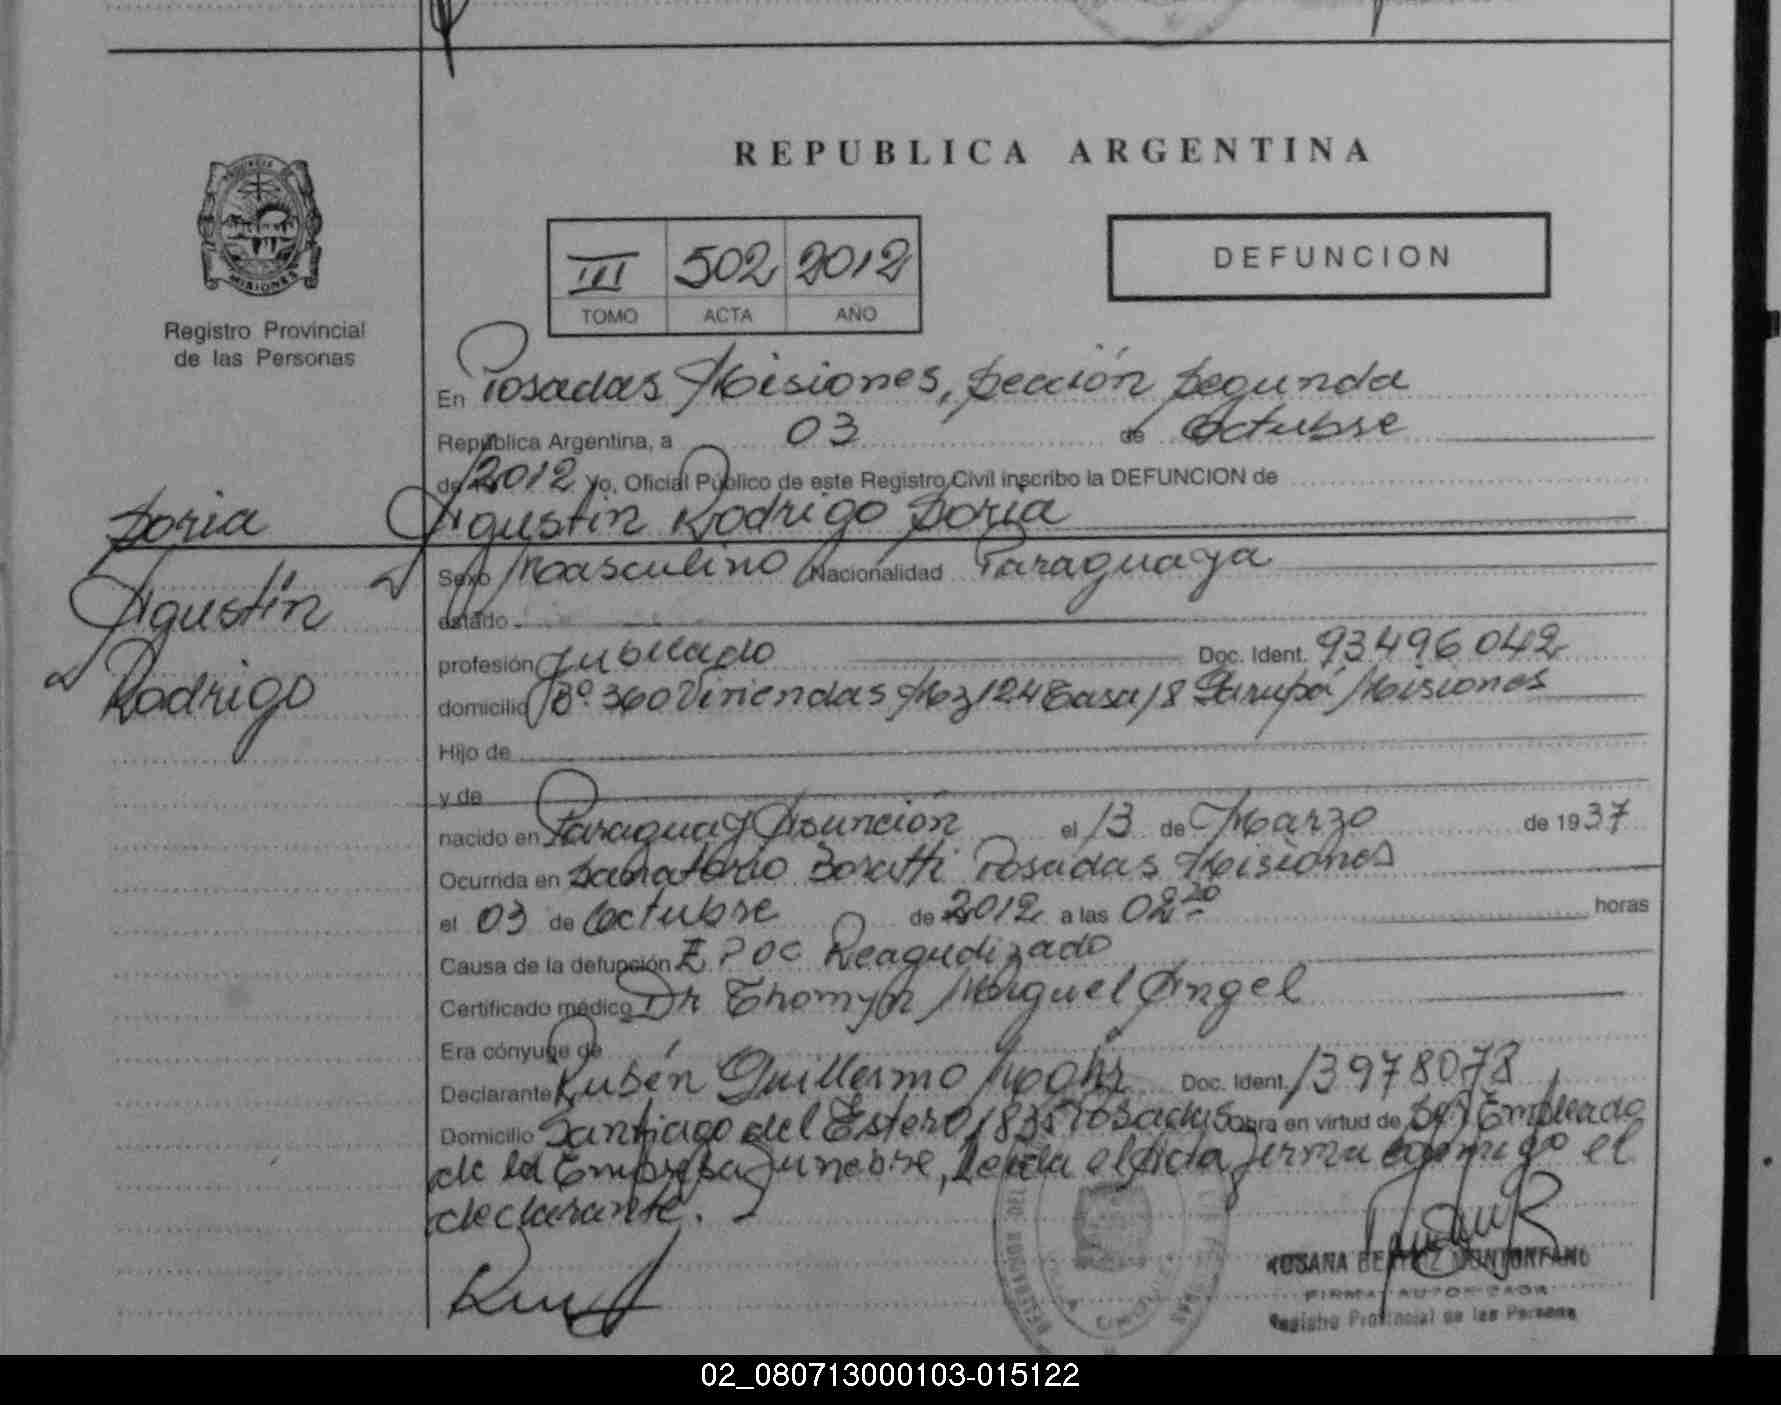 REPUBLICA ARGENTINA
III 502 2012
TOMO ACTA AÑO
DEFUNCION
PROVINCIA MISIONES
Registro Provincial
de las Personas
En Posadas Misiones, Sección Segunda
República Argentina, a 03 de Octubre
de 2012 yo, Oficial Público de este Registro Civil inscribo la DEFUNCION de
Agustín Rodrigo Soria
Soria
Agustín
Rodrigo
Sexo Masculino Nacionalidad Paraguaya
estado
profesión Jubilado Doc. Ident. 93496042
domicilio Bº 360 Viviendas Mz 124 Casa 18 Garupá Misiones
Hijo de
y de
nacido en Paraguay Asunción el 13 de Marzo de 1937
Ocurrida en Sanatorio Boratti Posadas Misiones
el 03 de Octubre de 2012 a las 02 20 horas
Causa de la defunción EPOC Reagudizado
Certificado médico Dr Thomyn Miguel Angel
Era cónyuge de
Declarante Rubén Guillermo Doc. Ident. 13978078
Domicilio Santiago del Estero 1835 Posadas Obra en virtud de Ser Empleado
de la Empresa Funebre, Leída el Acta firma conmigo el
declarante.
ROSANA BEATRIZ MONTORFANO
FIRMA AUTORIZADA
Registro Provincial de las Personas
02_080713000103-015122